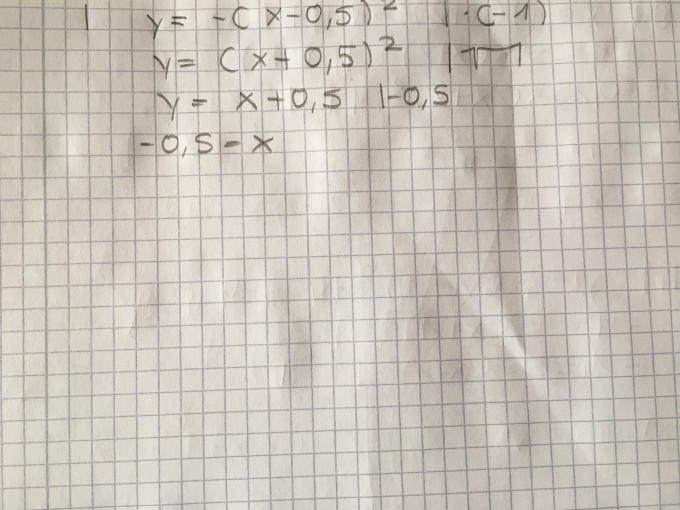 | y = -(x-0,5)² | ·(-1)
y = (x+0,5)² | √
y = x+0,5 |-0,5
-0,5 = x